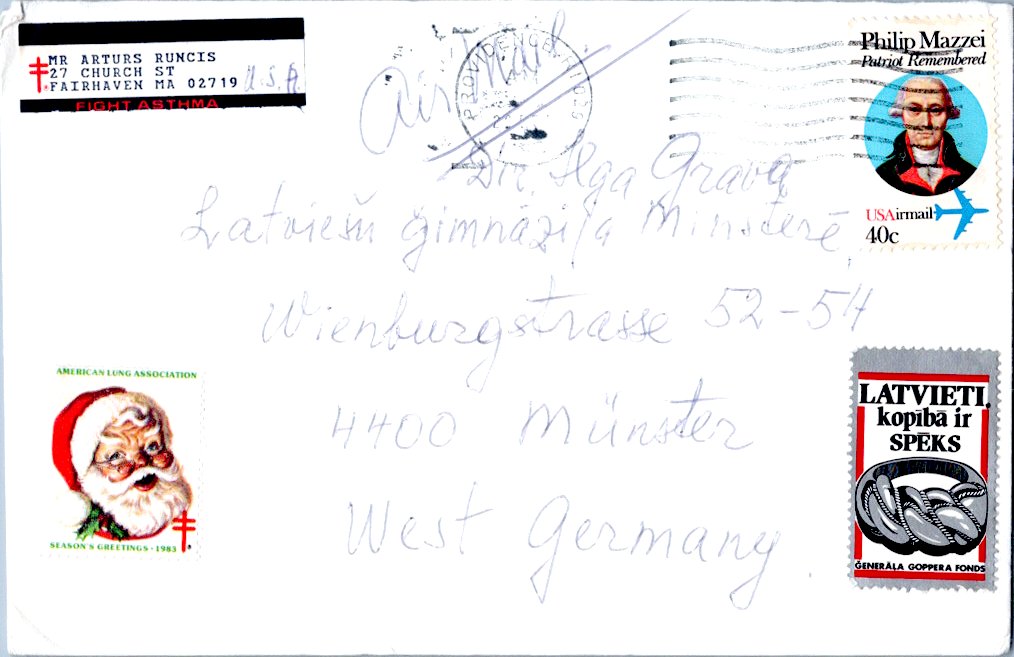 MR ARTURS RUNCIS
27 CHURCH ST
FAIRHAVEN MA 02719 U.S.A
FIGHT ASTHMA
Air Mail
PROVIDENCE, RI 029
Philip Mazzei
Patriot Remembered
USAirmail
40c
Dir. Ilga Grava
Latviešu ģimnāzija Minsterē
Wienburgstrasse 52-54
4400 Münster
West Germany.
AMERICAN LUNG ASSOCIATION
SEASON'S GREETINGS·1983
LATVIETI,
kopībā ir
SPĒKS
ĢENERĀĻA GOPPERA FONDS